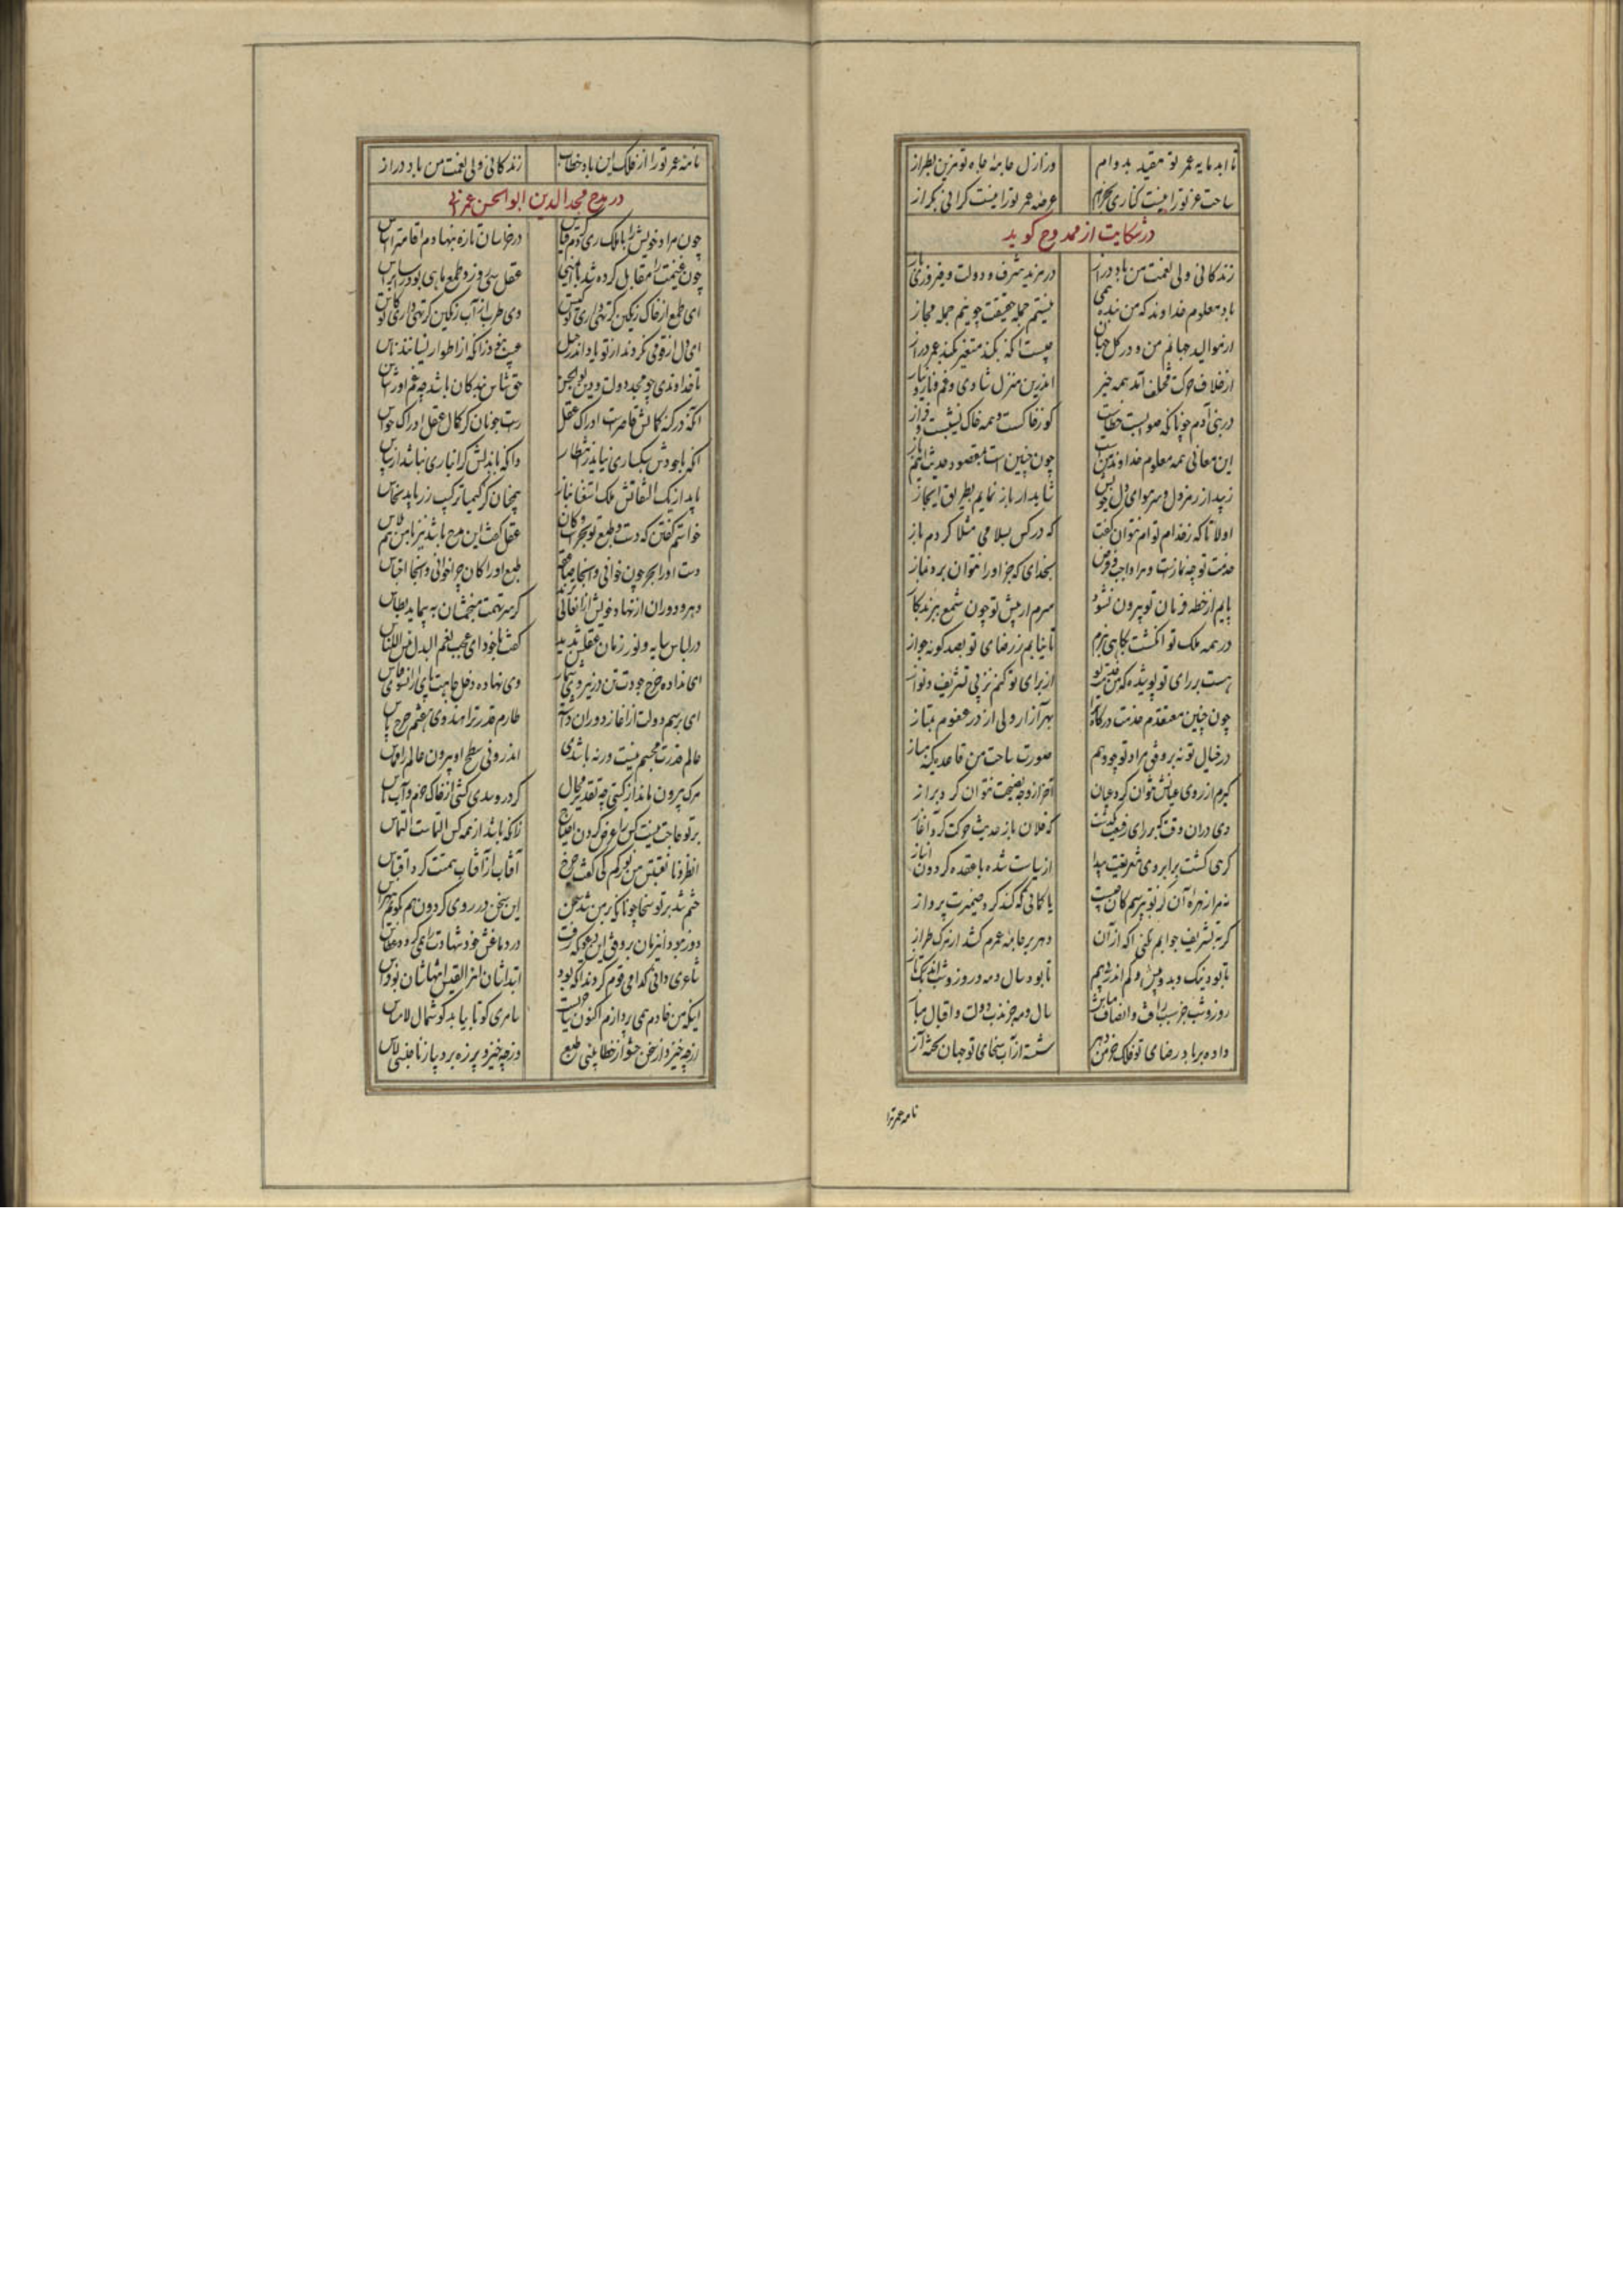 تا ابد مایه عمر تو مقید بدوام ور ازل جامهٔ جاه تو مزین بطراز
ساحت عز تو را نیست کناری عرصهٔ عمر تو را نیست کرانی
در شکایت از ممدوح گوید
زندگانی ولی نعمت من باد دراز در مزید شرف و دولت و پیروزی
باد معلوم خداوند که من بنده همی نیستم جمله حقیقت چو نیم جمله مجاز
از موالید جهانم من و در کل جهان چیست آنکه نکند متغیر نکند عمر دراز
از خلاف حرکت مختلف آمد همه چیز اندرین منزل شادی و غم و
در بنی آدم چونانکه صوابست خطاست که زخاکست و همه خاک نشیبست و فراز
این معانی همه معلوم خداوند من است چون چنین است بمقصود حدیث آیم باز
زپی از رمز دل و سر هوای دل خویش شاید ار باز نمایم بطریق ایجاز
اولا تا که ز خدام توام نتوان گفت که در کس بسلامی مثلا کردم باز
خدمت تو چه نمازست و مرا واجب و فرض بخدای که جز او را نتوان برد نماز
پایم از خطه فرمان تو بیرون نشود سرم ار پیش تو چون شمع ببرند بکاز
در همه ملک تو انگشت بکاهی نزنم تا نیابم ز رضای تو بصد گونه جواز
هست بر رای تو پوشیده که من خدمت تو از برای تو کنم نز پی تشریف و نواز
چون چنین معتقدم خدمت درگاه ترا بهر آزار دلی از در عفوم متاز
در خیال تو نه بر وفق مراد تو چو وهم صورت ساحت من قاعدهٔ کینه مساز
گیرم از روی عیانش نتوان کرد عیان آخر از وجه نصیحت نتوان کرد براز
وی در آن وقت که بر رای رفیعت بگذشت که فلان باز حدیث حرکت کرد آغاز
گرهی گشت برابروی شریفت پیدا از سیاست شده با عقده گردون انباز
نه مرا زهره آن کز تو بپرسم کان چیست یا کمانی که کند گرد ضمیرت پرواز
گر بتشریف جوابم نکنی آگه از آن دهر بر جامهٔ عمرم کشد از مرگ طراز
تا بود نیک و بد و بیش و کم اندر عالم تا بود سال و مه و روز و شب اندر تک و تاز
روز و شب جز سبب رأفت و انصاف مباش سال و مه جز بدر دولت و اقبال مناز
داده بر باد رضای تو فلک خرمن دهر شسته از آب سخای تو جهان تختهٔ آز
نامه عمر ترا
نامهٔ عمر تو را از فلک این باد خطاب زندگانی ولی نعمت من باد دراز
در مدح مجدالدین ابوالحسن عمرانی
چون مراد خویش را با ملک ری کردم قیاس در خراسان تازه بنهادم اقامت را اساس
چون غنیمت را مقابل کرده شد با ایمنی عقل سی روز و طمع ماهی بود راسا براس
ای طمع از خاک رنگین گر تهی داری کیس وی طرب از آب رنگین گر تهی داری کاس
ای دل ار قومی نکردند از تو یاد اندر رحیل عیب خود زانکه از اطوار نسیانند ناس
تا خداوندی چو مجد دولت و دین بوالحسن حق شناس بندگان باشد چه غم او را شناس
آنکه در کنه کمالش قاصرست ادراک عقل راست چونان کز کمال عقل ادراک حواس
آنکه با جودش سبکساری نیاید ز انتظار وانکه با بذلش گرانباری نباشد از سپاس
یابد از یک التفاتش ملک استغنا نیاز همچنان کز کیمیا ترکیب زر یابد نحاس
خواستم گفتن که دست و طبع تو بحر است و کان عقل گفت این مدح باشد نیز با من هم پلاس
دست او را بحر چون خوانی و آنجا صاعقه طبع او را کان چرا خوانی و اینجا احتباس
دهر و دوران از نهاد خویش از آن عالی تر گر سر تهمت منجمشان به پیماید بطاس
در لباس سایه و نور زمان عقلش بدید گفت با خود ای عجب نعم البدل بئس اللباس
ای نداده چرخ جودت تن در نیروی سپاس وی نهاده دخل جاهت پای از انسوی قیاس
ای برسم دولت از آغاز دوران داشته طارم قدر ترا هندوی هفتم چرخ پاس
عالم قدرت مجسم نیست ورنه باشدی اندرونی سطح او بیرون عالم را مماس
مرگ بیرون ماند از گیتی چه تقدیر محال گر درو سدی کشی از خاک حزم و آب باس
بر تو حاجت نیست کس را عرض کردن احتیاج زانکه باشد از همه کس التماست التماس
انظرونا نقتبس من نورکم کی گفت چرخ کافتاب از آفتاب همتت کرد اقتباس
ختم شد بر تو سخا چونانکه بر من شد سخن این سخن در روی گردون هم بگویم بی هراس
دور نبود این زمان بر وفق این دعوی که رفت در دماغش خود شهادت را همی گردد عطاس
شاعری دانی کدامی قوم کردند آنکه بود ابتداشان امرء القیس انتهاشان بو فراس
اینکه من خادم همی پردازم اکنون ساحریست سامری کو تا بیابد گوشمال لامساس
از چه خیزد از سخن حشو از خطا بینی طبع وز چه خیزد پرزه بر دیبا ز ناجنسی لاس